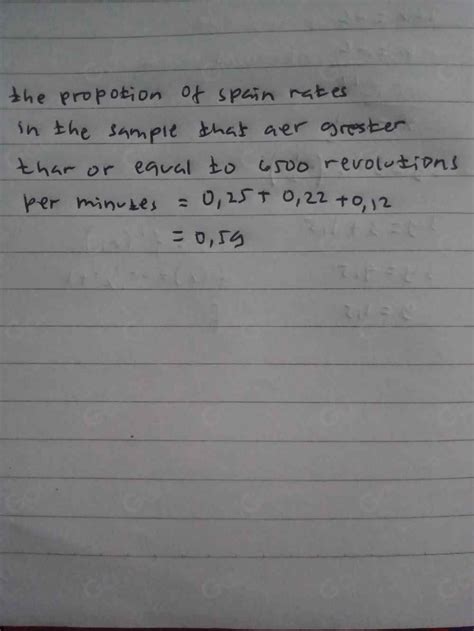 the propotion of spain rates
in the sample that aer grester
thar or equal to 6500 revolutions
per minutes = 0,25 + 0,22 + 0,12
= 0,59